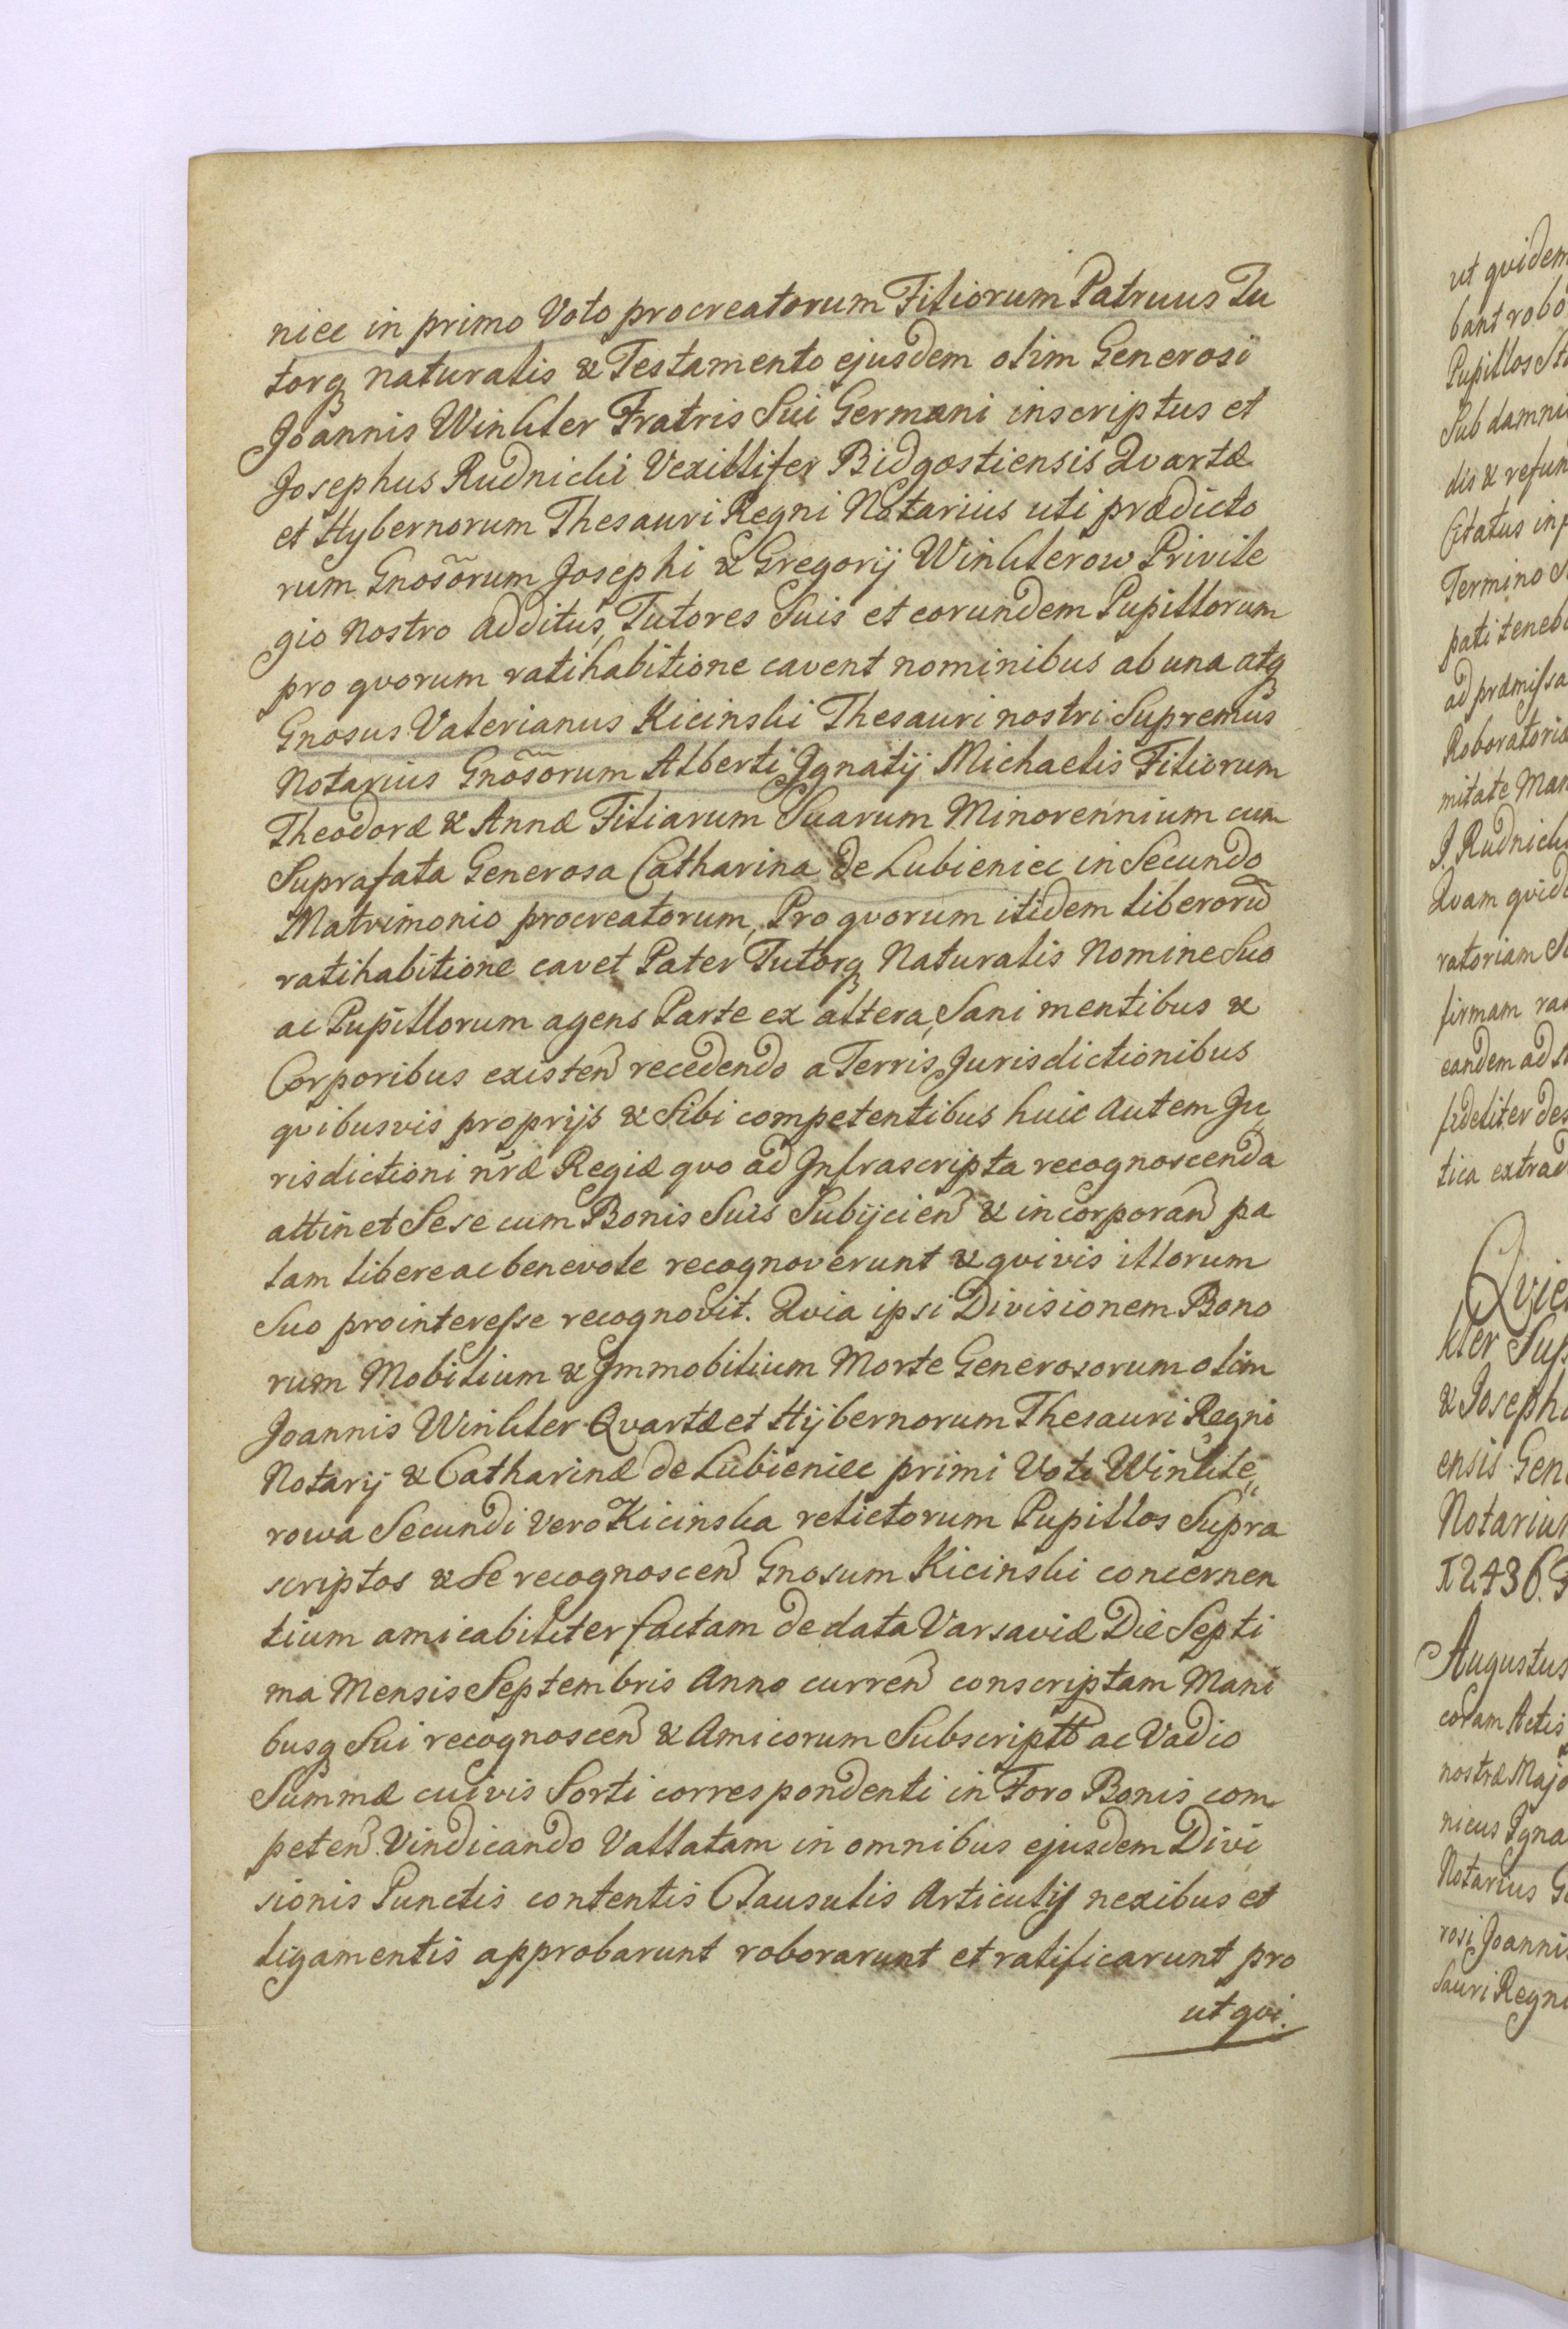 niec in primo Voto procreatorum Filiorum Patruus Tu
torq naturalis & Testamento ejusdem olim Generosi
Joannis Winkler Fratris Sui Germani inscriptus et
Josephus Rudnicki Vexillifer Bidgostiensis Qvartæ
et Hybernorum Thesauri Regni Notarius uti prædicto
rum Gnosõrum Josephi & Gregorij Winklerow Privile
gio Nostro additus, Tutores Suis et eorundem Pupillorum
pro qvorum ratihabitione cavent nominibus ab una atq
Gnosus Valerianus Kicinski Thesauri nostri Supremus
Notarius Gnosõrum Alberti Ignatij Michaelis Filiorum
Theodoræ & Annæ Filiarum Suarum Minorennium cum
Suprafata Generosa Catharina de Lubieniec in Secundo
Matrimonio procreatorum, Pro qvorum itidem liberorũ
ratihabitione cavet Pater Tutorq Naturalis Nomine Suo
ac Pupillorum agens Parte ex altera, Sani mentibus &
Corporibus existen recedendo a Terris, Jurisdictionibus
qvibusvis proprijs & Sibi competentibus huic autem Ju
risdictioni nr̃æ Regiæ qvo ad Infrascripta recognoscenda
attinet Sese cum Bonis Suis Subijcien & incorporan pa
lam libere ac benevole recognoverunt & qvivis illorum
Suo pro interesse recognovit. Qvia ipsi Divisionem Bono
rum Mobilium & Immobilium Morte Generosorum olim
Joannis Winkler Qvartæ et Hybernorum Thesauri Regni
Notarij & Catharinæ de Lubieniec primi Voti Winkle„
rowa Secundi vero Kicinska relictorum Pupillos Supra
scriptos & Se recognoscen Gnosum Kicinski concernen
tium amicabiliter factam de data Varsaviæ Die Septi
ma Mensis Septembris Anno curren conscriptam Mani
busq Sui recognoscen & Amicorum Subscriptt ac Vadio
Summæ cuivis Sorti correspondenti in Foro Bonis com
peten Vindicando Vallatam in omnibus ejusdem Divi
sionis Punctis contentis Clausulis Articulis nexibus et
ligamentis approbarunt roborarunt et ratificarunt pro
ut qvi.
ut qvidem
bant robo
Pupillos
Sub damni
dis & refun
Citatus in
Termino
pati teneb
ad præmissa
Roboratoria
mitate Man
J. Rudnick
Qvam qvid
ratoriam
firmam ra
eandem ad
fideliter des
tica extrad
Qvie
kler Sup
& Joseph
ensis Gen
Notariu
Augustus
coram Actis
nostræ Majo
nicus Igna
Notarius
rosi Joannis
Sauri Regni